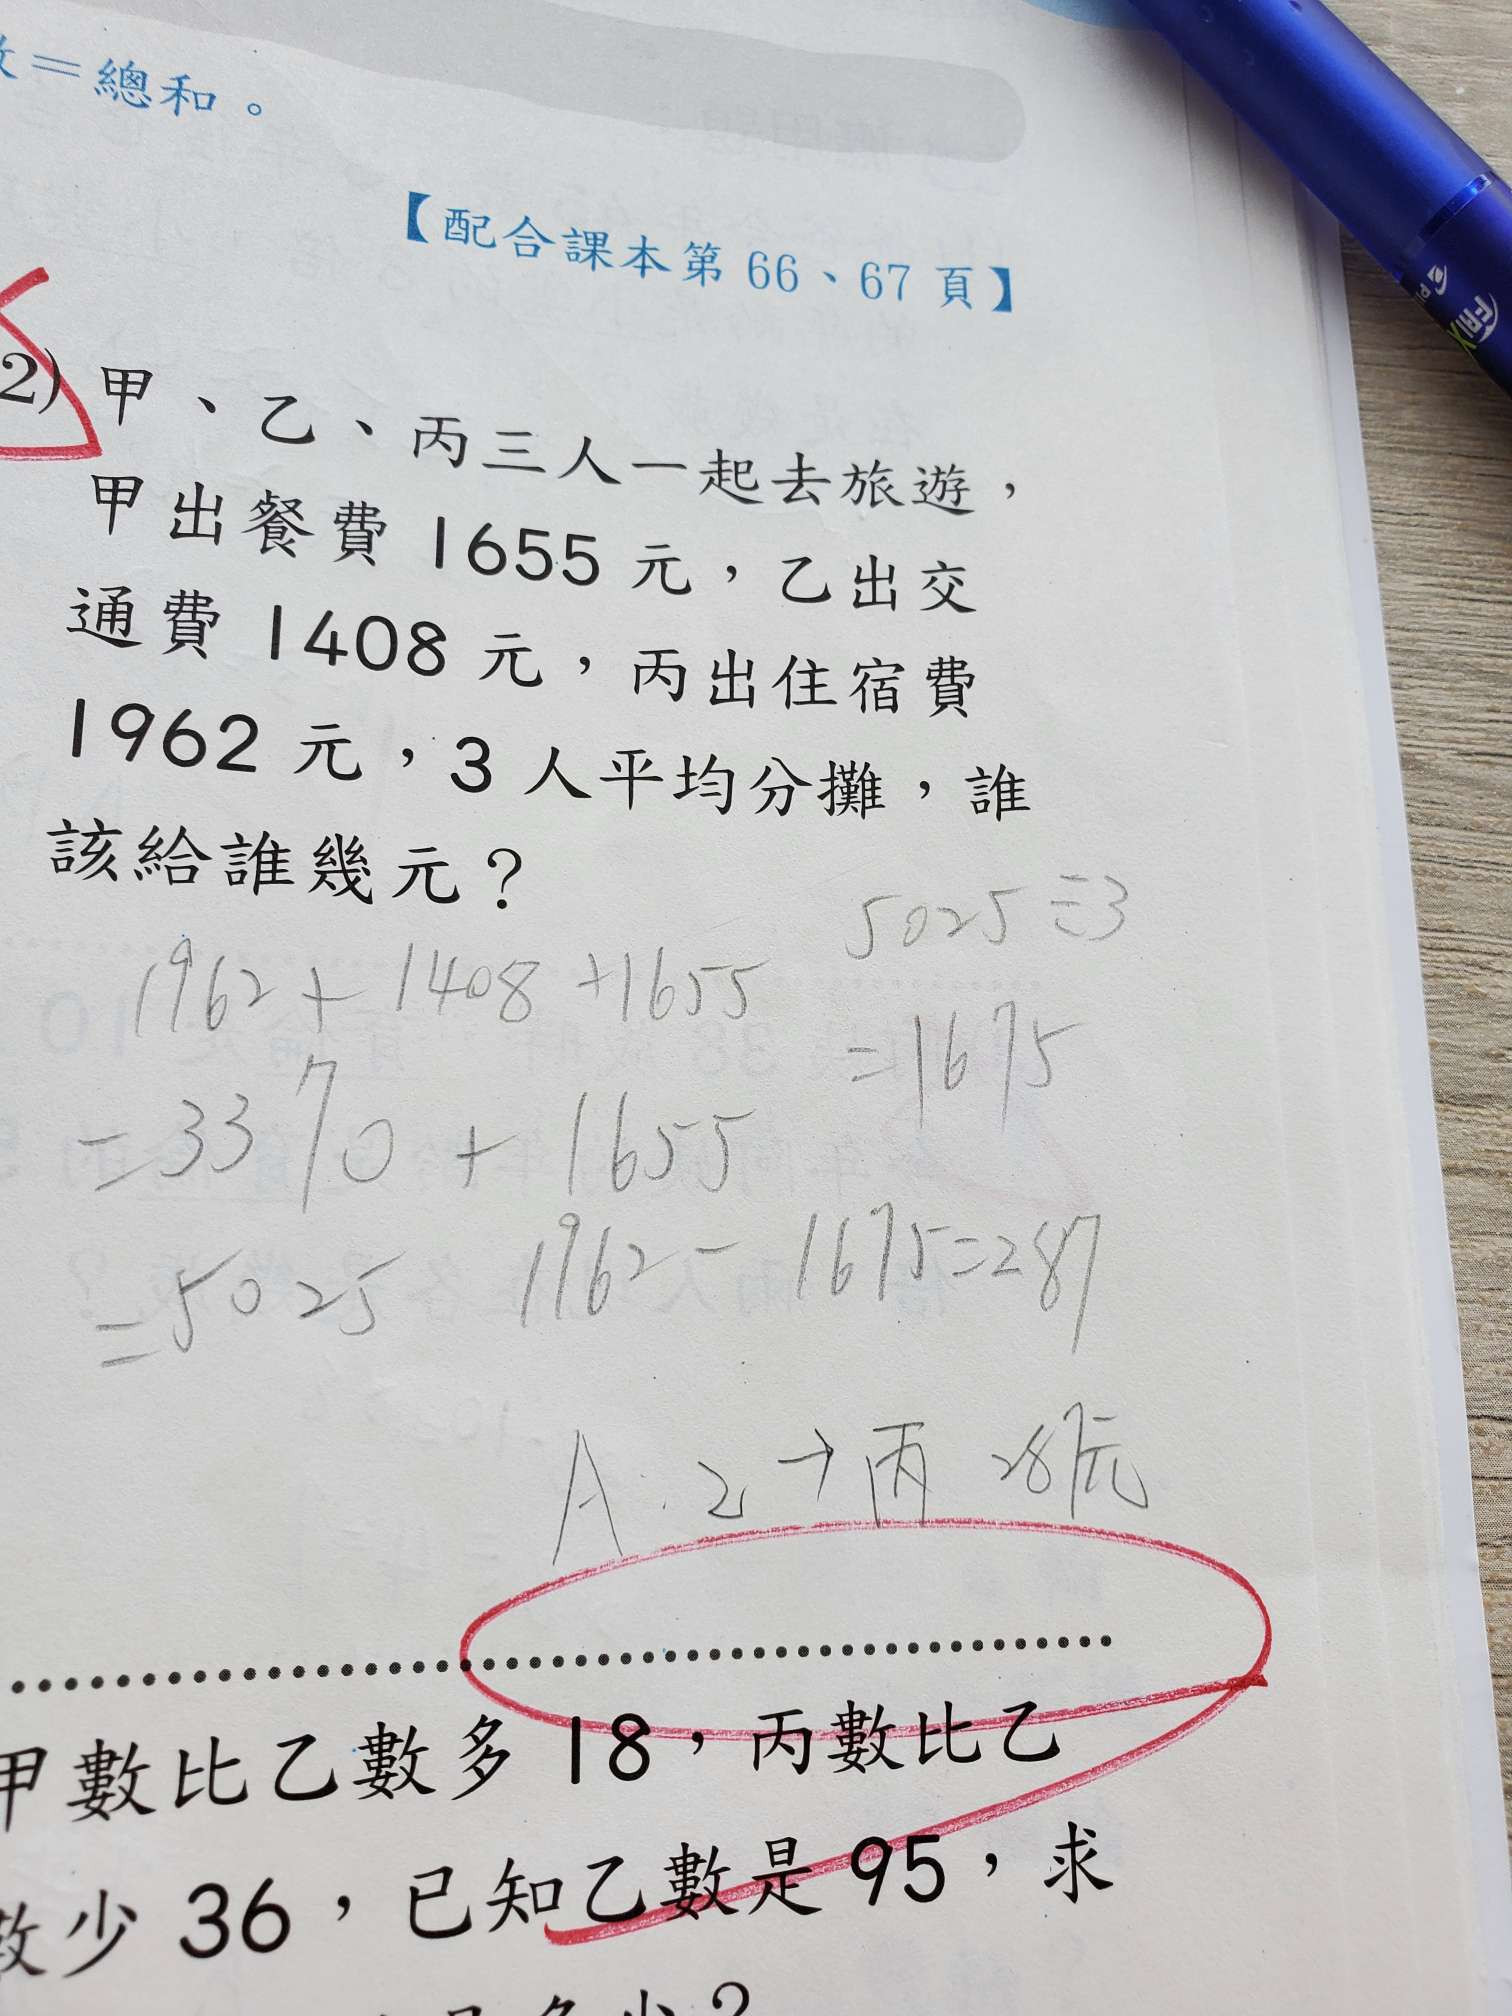 數＝總和。
【配合課本第 66、67 頁】
2) 甲、乙、丙三人一起去旅遊，
甲出餐費 1655 元，乙出交
通費 1408 元，丙出住宿費
1962 元，3 人平均分攤，誰
該給誰幾元？
1962 + 1408 + 1655
= 3370 + 1655
= 5025
5025 ÷ 3
= 1675
1962 - 1675 = 287
A：乙 → 丙 287元
甲數比乙數多 18，丙數比乙
數少 36，已知乙數是 95，求